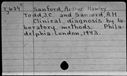 Sanford, Arthur Hawley
Todd, J.C. and Sanford, A.H.
Clinical diagnosis by la-
boratory methods. Phila-
delphia. London, 1943.